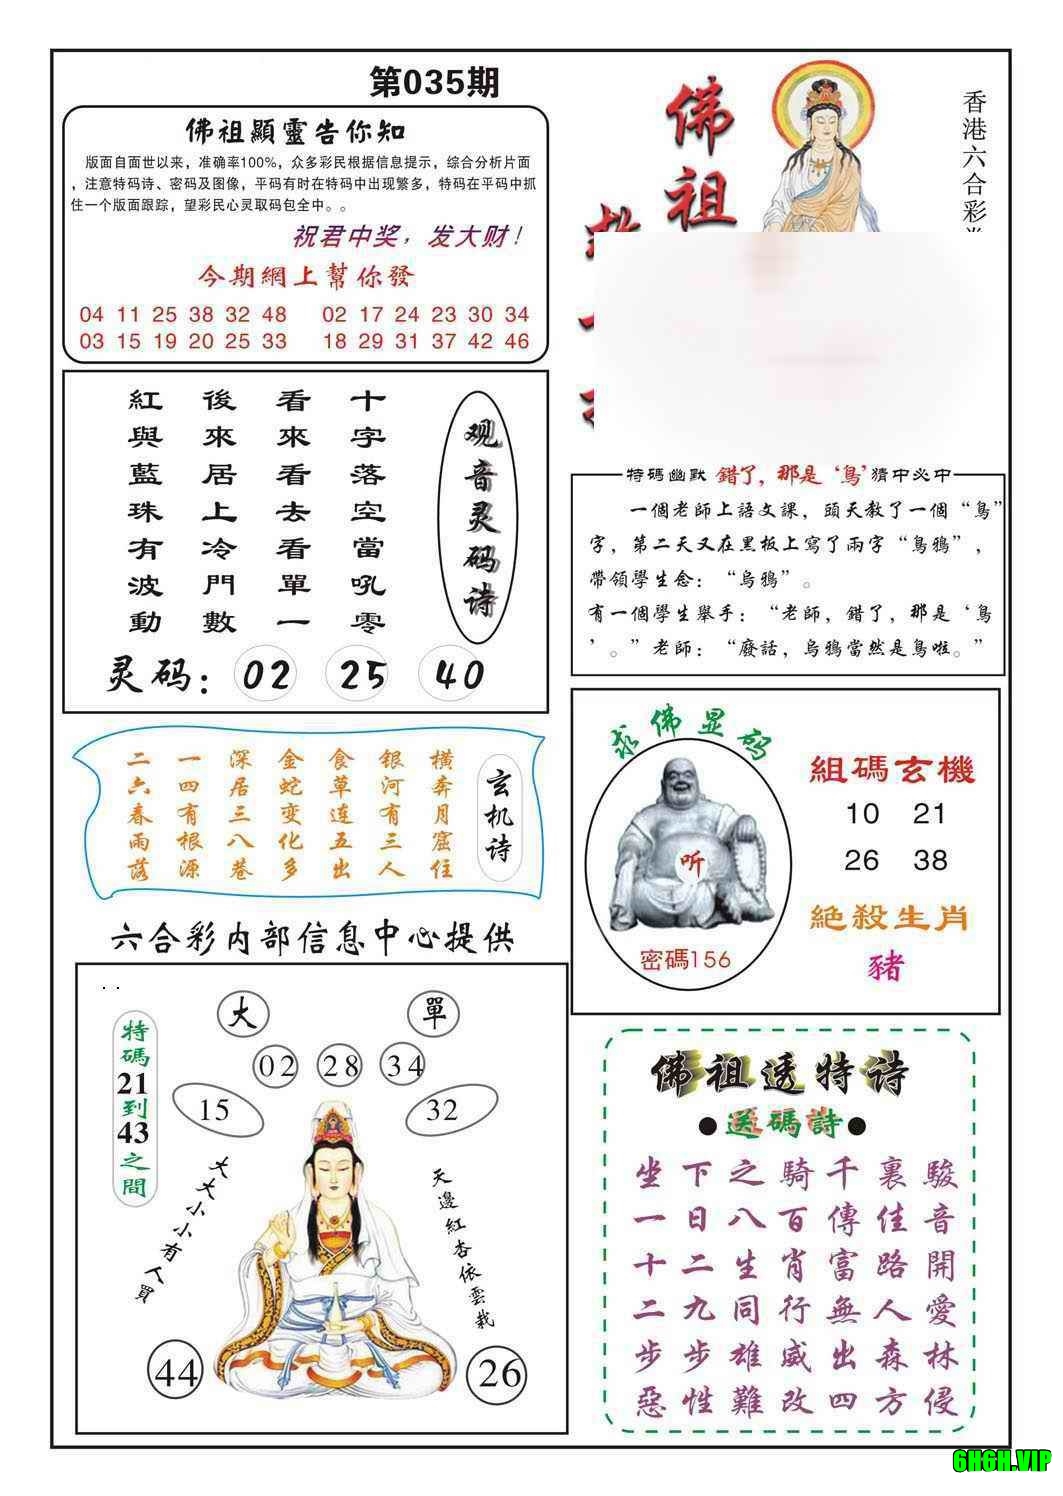 第035期
佛祖顯靈告你知
版面自面世以来，准确率100%，众多彩民根据信息提示，综合分析片面
，注意特码诗、密码及图像，平码有时在特码中出现繁多，特码在平码中抓
住一个版面跟踪，望彩民心灵取码包全中。。
祝君中奖，发大财！
今期網上幫你發
04 11 25 38 32 48 02 17 24 23 30 34
03 15 19 20 25 33 18 29 31 37 42 46
佛祖
香港六合彩
观音灵码诗
十字落空當吼零
看來看去看單一
後來居上冷門數
紅與藍珠有波動
灵码：02 25 40
特碼幽默 錯了，那是‘鳥’猜中必中
一個老師上語文課，頭天教了一個“鳥”
字，第二天又在黑板上寫了兩字“鳥鴉”，
帶領學生念：“烏鴉”。
有一個學生舉手：“老師，錯了，那是‘鳥
’。”老師：“廢話，烏鴉當然是鳥啦。”
玄机诗
横奔月窟住
银河有三人
食草连五出
金蛇变化多
深居三八巷
一四有根源
二六春雨落
求佛显码
听
密碼156
組碼玄機
10 21
26 38
絕殺生肖
豬
六合彩内部信息中心提供
大
單
特碼21到43之間
02 28 34
15
32
大大小小有人買
天邊紅杏依雲栽
44
26
佛祖透特诗
●送碼詩●
坐下之騎千裏駿
一日八百傳佳音
十二生肖富路開
二九同行無人愛
步步雄威出森林
惡性難改四方侵
6H6H.VIP